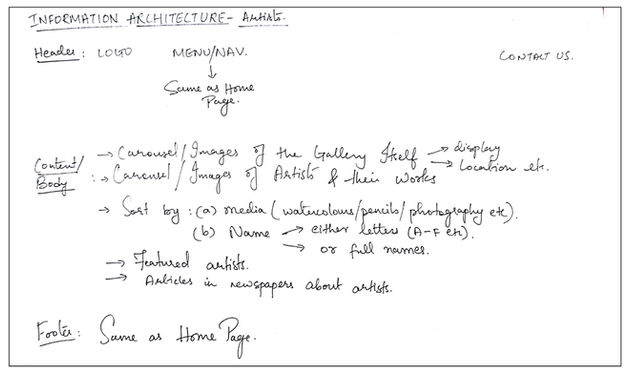 INFORMATION ARCHITECTURE - Artists.
Header: LOGO MENU/NAV. CONTACT US.
↓
Same as Home
Page.
Content/
Body :
→ Carousel/Images of the Gallery Itself → display
→ Location etc.
→ Carousel/Images of Artists & their works
→ Sort by : (a) media (watercolours/pencils/photography etc).
(b) Name → either letters (A-F etc).
→ or full names.
→ Featured artists.
→ Articles in newspapers about artists.
Footer: Same as Home Page.